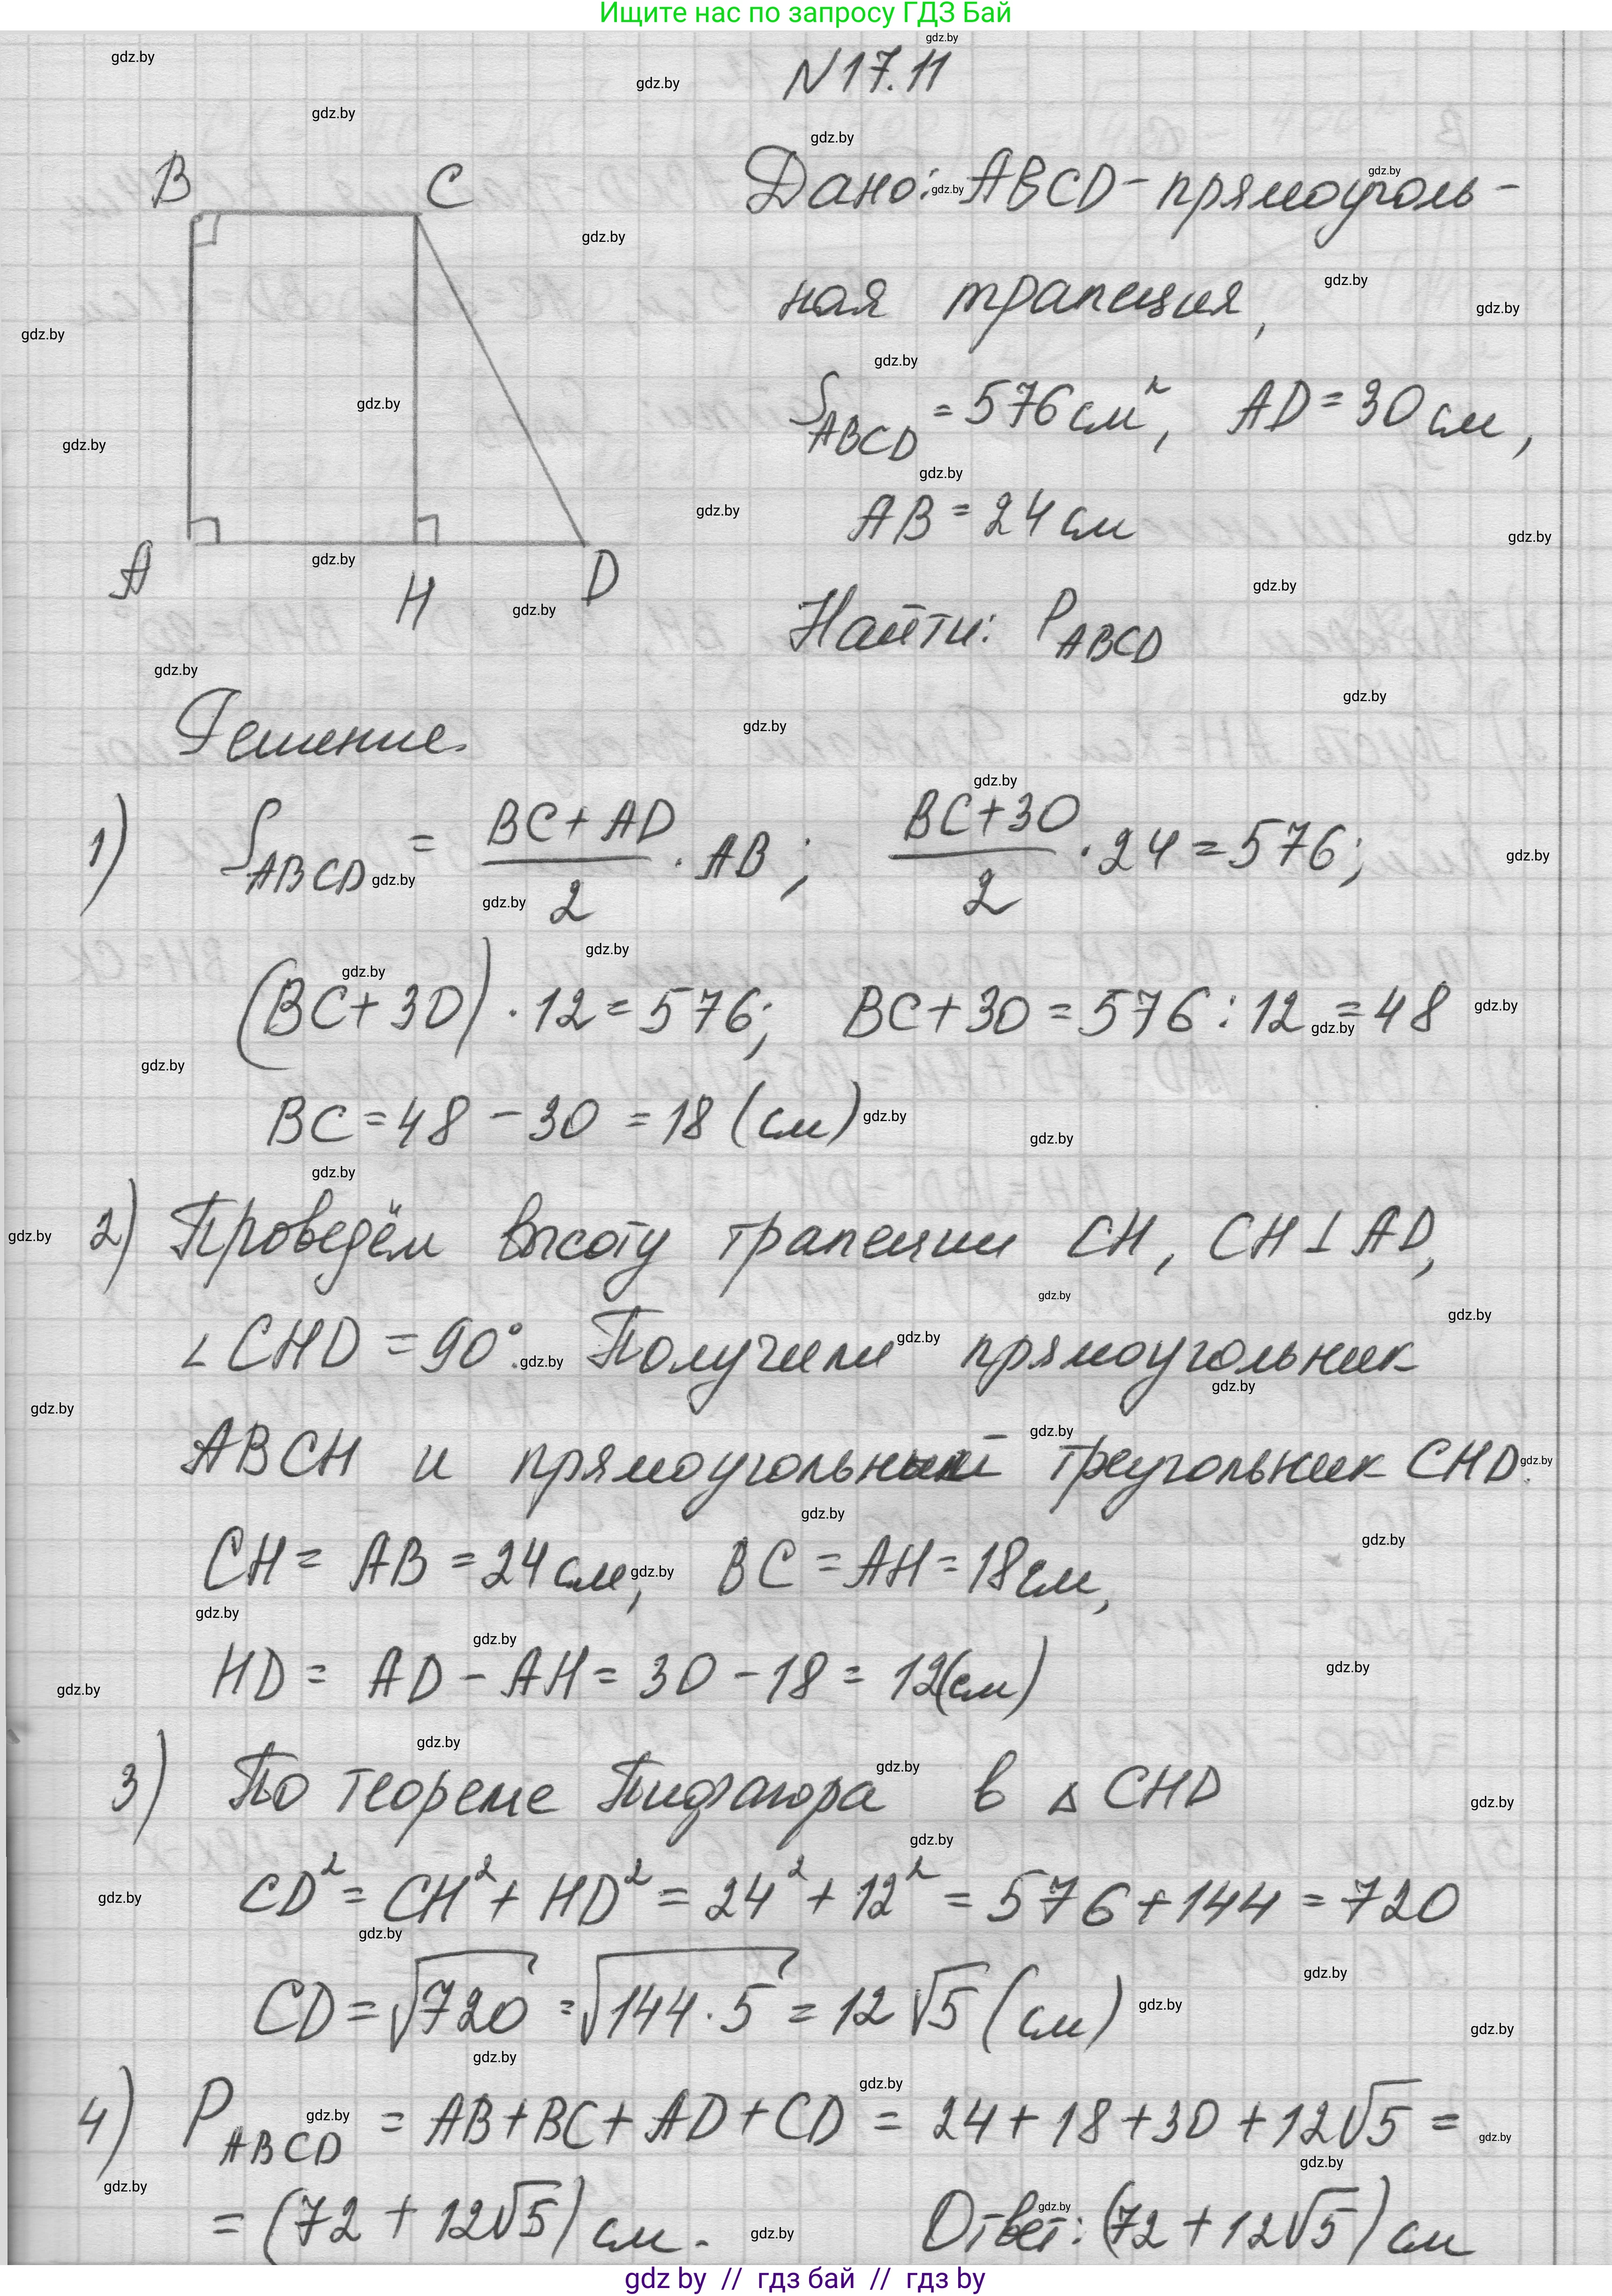 Ищите нас по запросу ГДЗ Бай
N 17.11
B C
A H D
Дано: ABCD - прямоуголь-
ная трапеция,
S_ABCD = 576 см², AD = 30 см,
AB = 24 см
Найти: P_ABCD
Решение.
1) S_ABCD = (BC + AD)/2 · AB ; (BC+30)/2 · 24 = 576;
(BC + 30) · 12 = 576; BC + 30 = 576 : 12 = 48
BC = 48 - 30 = 18 (см)
2) Проведём высоту трапеции CH, CH ⊥ AD,
∠CHD = 90°. Получили прямоугольник
ABCH и прямоугольный треугольник CHD.
CH = AB = 24 см, BC = AH = 18 см,
HD = AD - AH = 30 - 18 = 12(см)
3) По теореме Пифагора в △ CHD
CD² = CH² + HD² = 24² + 12² = 576 + 144 = 720
CD = √720 = √144 · 5 = 12 √5 (см)
4) P_ABCD = AB + BC + AD + CD = 24 + 18 + 30 + 12√5 =
= (72 + 12√5) см. Ответ: (72 + 12√5) см
gdz by // гдз бай // гдз by